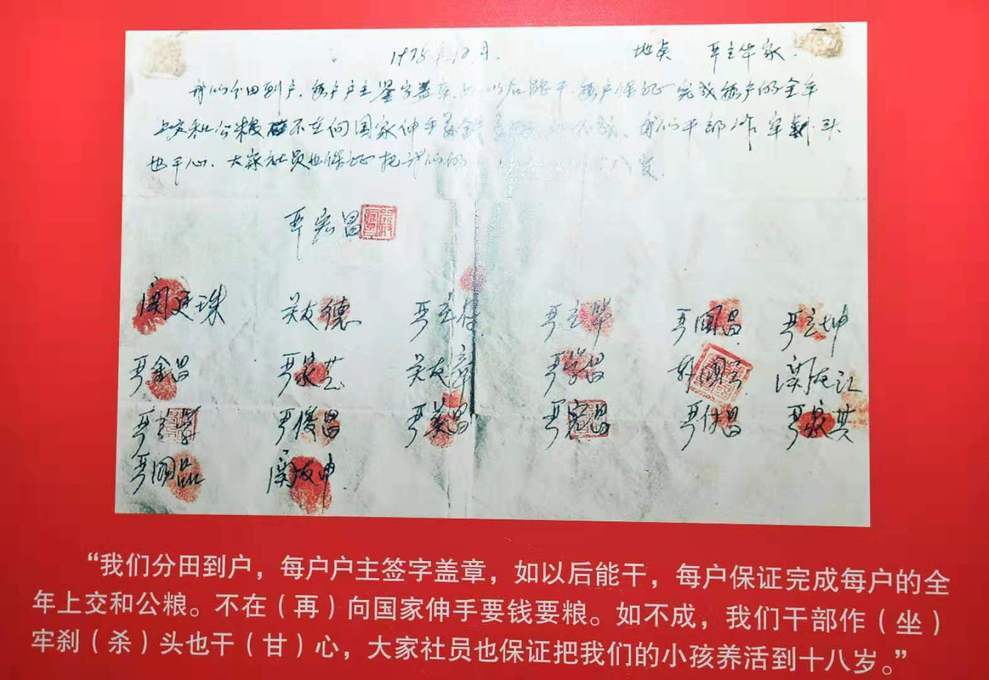 1978 12月. 地点 严立华家.
我们分田到户,每户户主签字盖章,如以后能干,每户保证完成每户的全年
上交和公粮 不在向国家伸手要钱要粮 如不成,我们干部作牢刹头
也干心,大家社员也保证把我们的 十八岁.
严宏昌
关廷珠 关友德 严立付 严立华 严国昌 严立坤
严金昌 严家芝 关友章 严学昌 韩国云 关友江
严立学 严俊昌 严美昌 严宏昌 严付昌 严家其
严国品 关友申
“我们分田到户，每户户主签字盖章，如以后能干，每户保证完成每户的全
年上交和公粮。不在（再）向国家伸手要钱要粮。如不成，我们干部作（坐）
牢刹（杀）头也干（甘）心，大家社员也保证把我们的小孩养活到十八岁。”